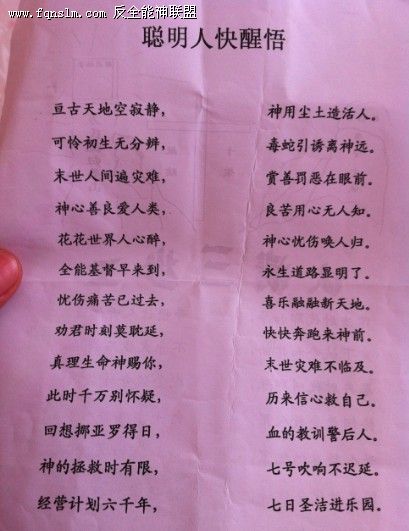 www.fqnslm.com 反全能神联盟
聪明人快醒悟
亘古天地空寂静，神用尘土造活人。
可怜初生无分辨，毒蛇引诱离神远。
末世人间遍灾难，赏善罚恶在眼前。
神心善良爱人类，良苦用心无人知。
花花世界人心醉，神心忧伤唤人归。
全能基督早来到，永生道路显明了。
忧伤痛苦已过去，喜乐融融新天地。
劝君时刻莫耽延，快快奔跑来神前。
真理生命神赐你，末世灾难不临及。
此时千万别怀疑，历来信心救自己。
回想挪亚罗得日，血的教训警后人。
神的拯救时有限，七号吹响不迟延。
经营计划六千年，七日圣洁进乐园。